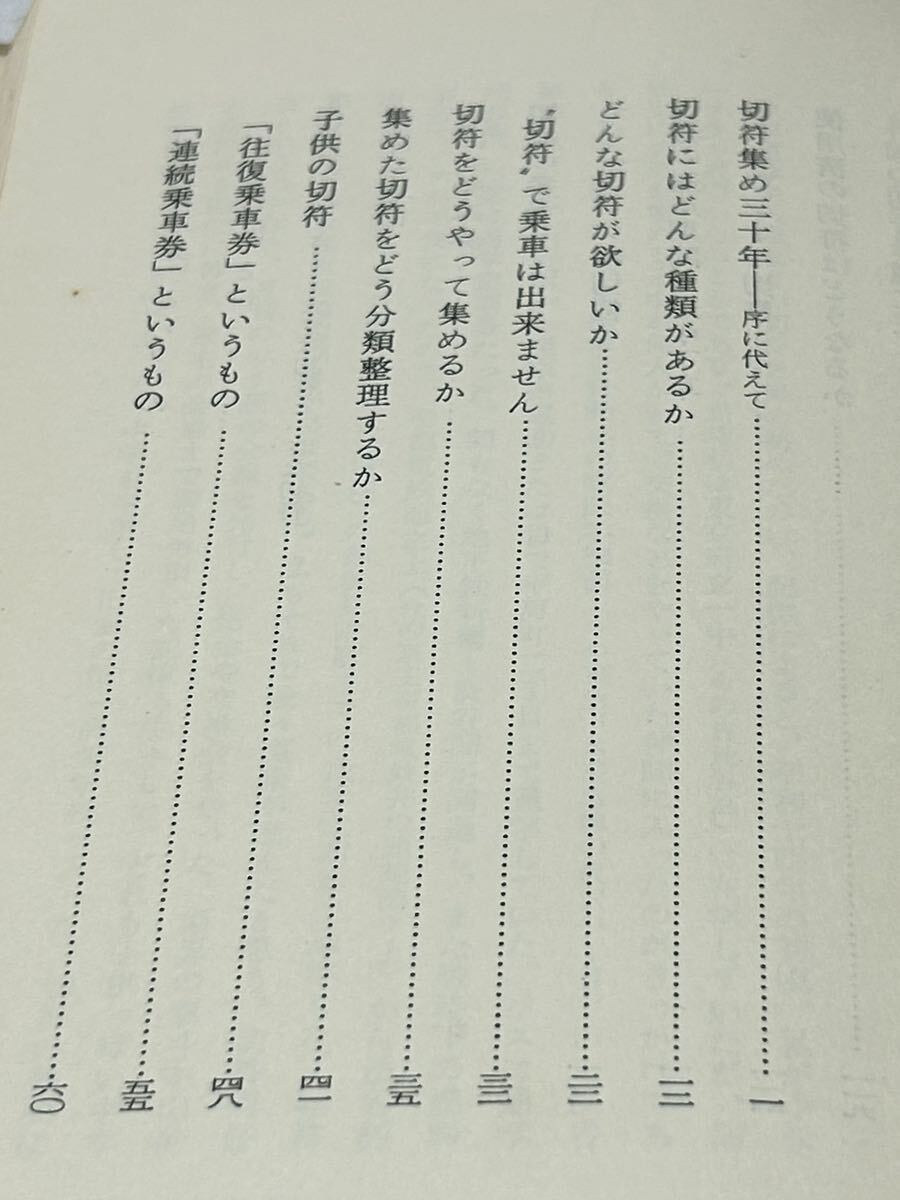 切符集め三十年――序に代えて……………一
切符にはどんな種類があるか……………一二
どんな切符が欲しいか……………二二
〝切符〟で乗車は出来ません……………三一
切符をどうやって集めるか……………三五
集めた切符をどう分類整理するか……………四一
子供の切符……………四八
「往復乗車券」というもの……………五五
「連続乗車券」というもの……………六〇